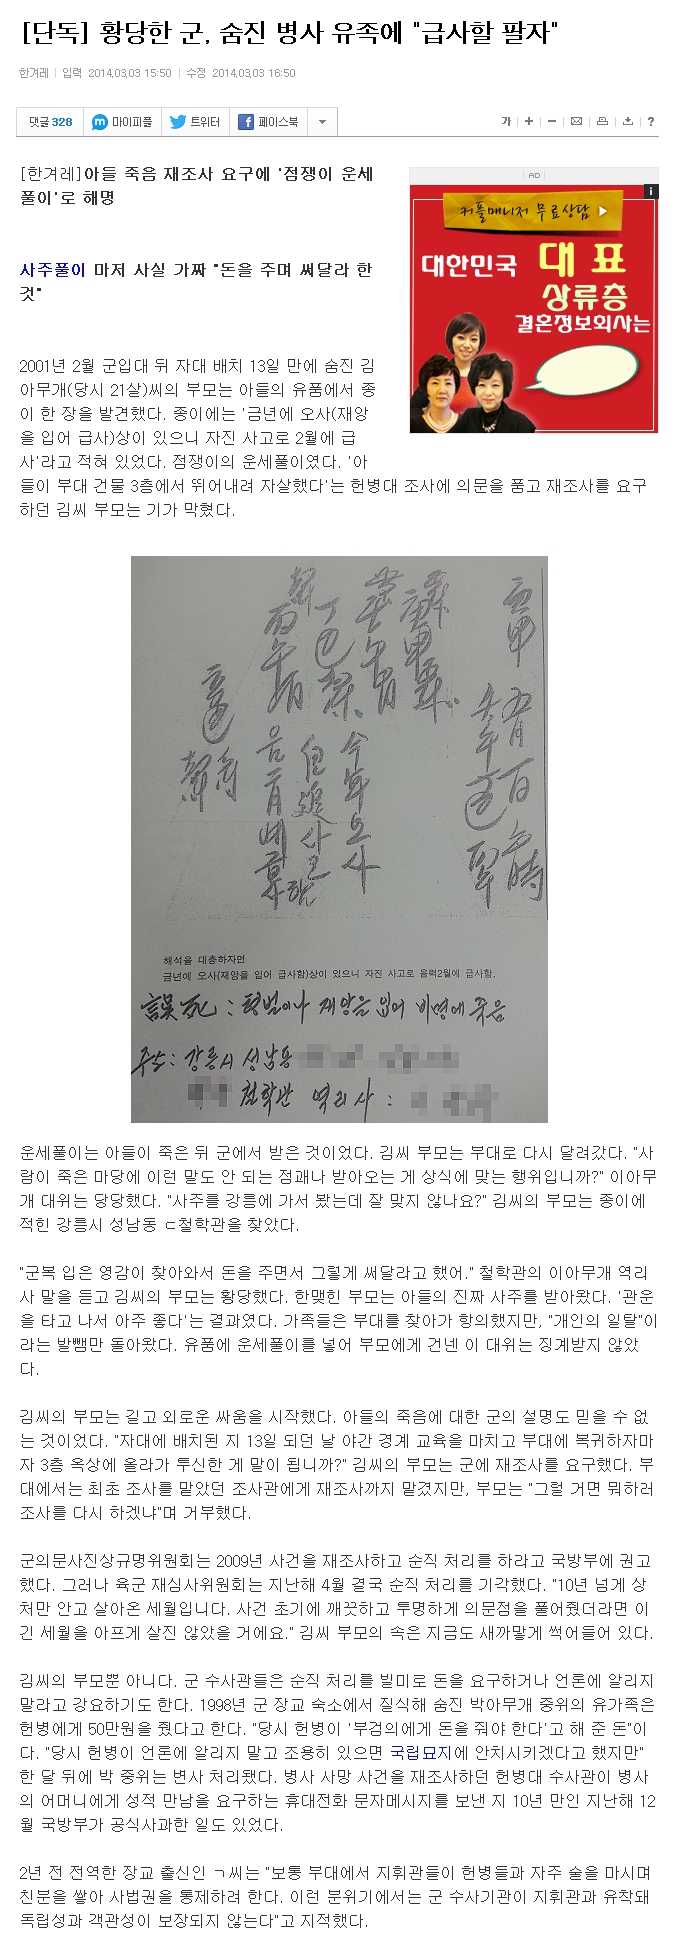 [단독] 황당한 군, 숨진 병사 유족에 "급사할 팔자"
한겨레 | 입력 2014.03.03 15:50 | 수정 2014.03.03 16:50
댓글 328 마이피플 트위터 페이스북
가 + − ?
[한겨레]아들 죽음 재조사 요구에 '점쟁이 운세
풀이'로 해명
AD
i
커플매니저 무료상담
대한민국 대표
상류층
결혼정보회사는
사주풀이 마저 사실 가짜 "돈을 주며 써달라 한
것"
2001년 2월 군입대 뒤 자대 배치 13일 만에 숨진 김
아무개(당시 21살)씨의 부모는 아들의 유품에서 종
이 한 장을 발견했다. 종이에는 '금년에 오사(재앙
을 입어 급사)상이 있으니 자진 사고로 2월에 급
사'라고 적혀 있었다. 점쟁이의 운세풀이였다. '아
들이 부대 건물 3층에서 뛰어내려 자살했다'는 헌병대 조사에 의문을 품고 재조사를 요구
하던 김씨 부모는 기가 막혔다.
해석을 대충하자면
금년에 오사(재앙을 입어 급사함)상이 있으니 자진 사고로 음력2월에 급사함.
誤死 : 형벌이나 재앙을 입어 비명에 죽음
주소 : 강릉시 성남동
철학관 역리사 :
운세풀이는 아들이 죽은 뒤 군에서 받은 것이었다. 김씨 부모는 부대로 다시 달려갔다. "사
람이 죽은 마당에 이런 말도 안 되는 점괘나 받아오는 게 상식에 맞는 행위입니까?" 이아무
개 대위는 당당했다. "사주를 강릉에 가서 봤는데 잘 맞지 않나요?" 김씨의 부모는 종이에
적힌 강릉시 성남동 ㄷ철학관을 찾았다.
"군복 입은 영감이 찾아와서 돈을 주면서 그렇게 써달라고 했어." 철학관의 이아무개 역리
사 말을 듣고 김씨의 부모는 황당했다. 한맺힌 부모는 아들의 진짜 사주를 받아왔다. '관운
을 타고 나서 아주 좋다'는 결과였다. 가족들은 부대를 찾아가 항의했지만, "개인의 일탈"이
라는 발뺌만 돌아왔다. 유품에 운세풀이를 넣어 부모에게 건넨 이 대위는 징계받지 않았
다.
김씨의 부모는 길고 외로운 싸움을 시작했다. 아들의 죽음에 대한 군의 설명도 믿을 수 없
는 것이었다. "자대에 배치된 지 13일 되던 날 야간 경계 교육을 마치고 부대에 복귀하자마
자 3층 옥상에 올라가 투신한 게 말이 됩니까?" 김씨의 부모는 군에 재조사를 요구했다. 부
대에서는 최초 조사를 맡았던 조사관에게 재조사까지 맡겼지만, 부모는 "그럴 거면 뭐하러
조사를 다시 하겠냐"며 거부했다.
군의문사진상규명위원회는 2009년 사건을 재조사하고 순직 처리를 하라고 국방부에 권고
했다. 그러나 육군 재심사위원회는 지난해 4월 결국 순직 처리를 기각했다. "10년 넘게 상
처만 안고 살아온 세월입니다. 사건 초기에 깨끗하고 투명하게 의문점을 풀어줬더라면 이
긴 세월을 아프게 살진 않았을 거에요." 김씨 부모의 속은 지금도 새까맣게 썩어들어 있다.
김씨의 부모뿐 아니다. 군 수사관들은 순직 처리를 빌미로 돈을 요구하거나 언론에 알리지
말라고 강요하기도 한다. 1998년 군 장교 숙소에서 질식해 숨진 박아무개 중위의 유가족은
헌병에게 50만원을 줬다고 한다. "당시 헌병이 '부검의에게 돈을 줘야 한다'고 해 준 돈"이
다. "당시 헌병이 언론에 알리지 말고 조용히 있으면 국립묘지에 안치시키겠다고 했지만"
한 달 뒤에 박 중위는 변사 처리됐다. 병사 사망 사건을 재조사하던 헌병대 수사관이 병사
의 어머니에게 성적 만남을 요구하는 휴대전화 문자메시지를 보낸 지 10년 만인 지난해 12
월 국방부가 공식사과한 일도 있었다.
2년 전 전역한 장교 출신인 ㄱ씨는 "보통 부대에서 지휘관들이 헌병들과 자주 술을 마시며
친분을 쌓아 사법권을 통제하려 한다. 이런 분위기에서는 군 수사기관이 지휘관과 유착돼
독립성과 객관성이 보장되지 않는다"고 지적했다.